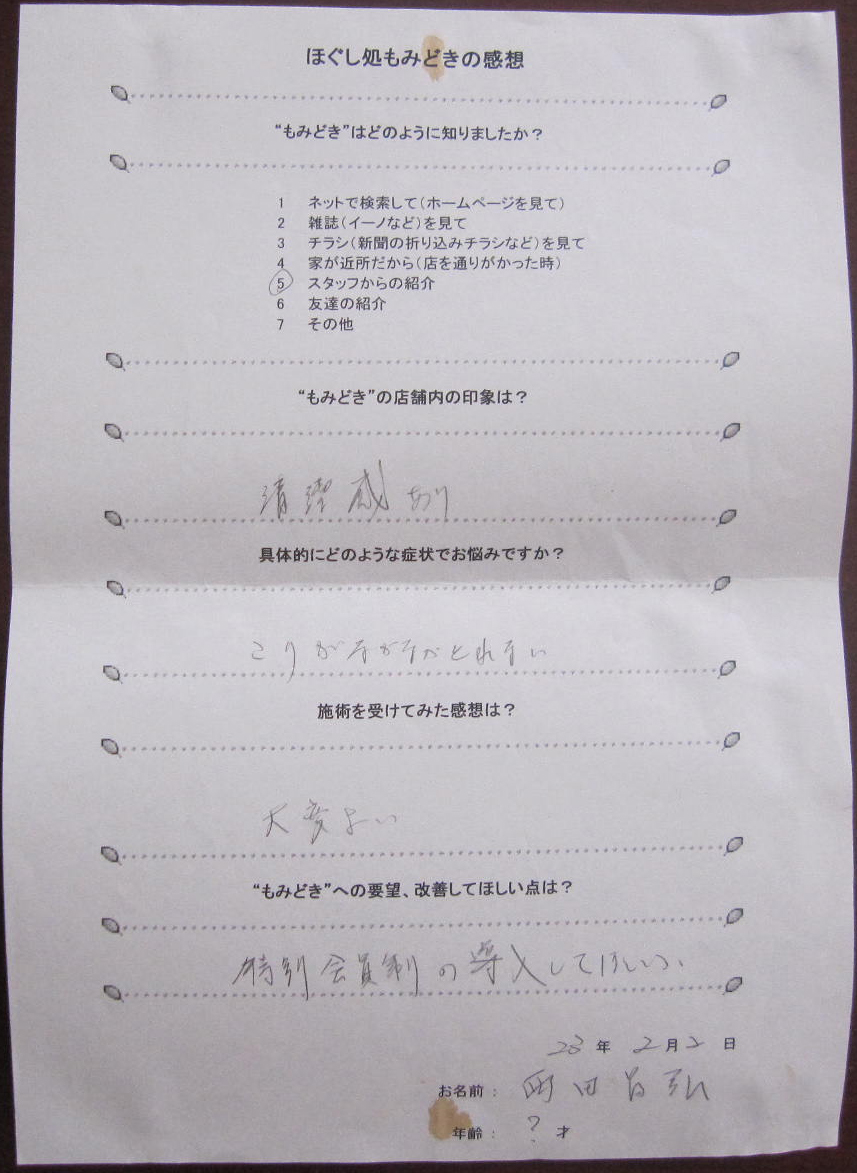 ほぐし処もみどきの感想
“もみどき”はどのように知りましたか？
1 ネットで検索して(ホームページを見て)
2 雑誌(イーノなど)を見て
3 チラシ(新聞の折り込みチラシなど)を見て
4 家が近所だから(店を通りがかった時)
5 スタッフからの紹介
6 友達の紹介
7 その他
“もみどき”の店舗内の印象は？
清潔感あり
具体的にどのような症状でお悩みですか？
こりがなかなかとれない
施術を受けてみた感想は？
大変よい
“もみどき”への要望、改善してほしい点は？
特別会員制の導入してほしい。
23年 2月2日
お名前： 町田昌弘
年齢： ？才